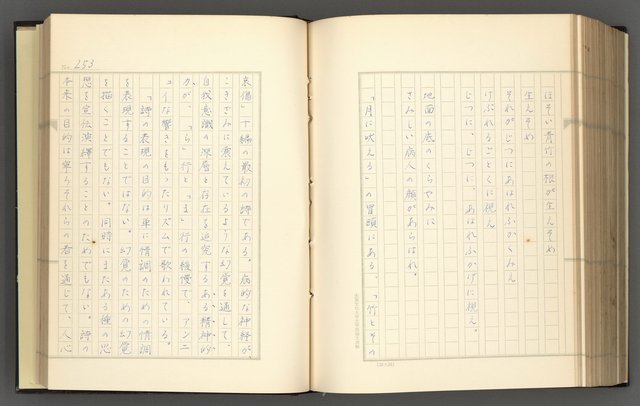 ほそい青竹の根が生えそめ
生えそめ
それがじつにあはれふかくみえ
けぶれるごとくに視え
じつに、じつに、あはれふかげに視え。
地面の底のくらやみに
さみしい病人の顔があらはれ。
「月に吠える」の冒頭にある、「竹とその
哀傷」十編の最初の詩である。病的な神経が、
こきざみに震えているような幻覚を通して、
自我意識の深層と存在を追究するある精神的
力が、「ら」行と「ま」行の緩慢で、アンニ
ュイな響きをもったリズムで歌われている。
「詩の表現の目的は単に情調のための情調
を表現することではない。幻覚のための幻覚
を描くことでもない。同時にまたある種の思
想を宣伝演繹することのためでもない。詩の
本来の目的は寧ろそれらの者を通じて、人心
No. 253
(20×20)